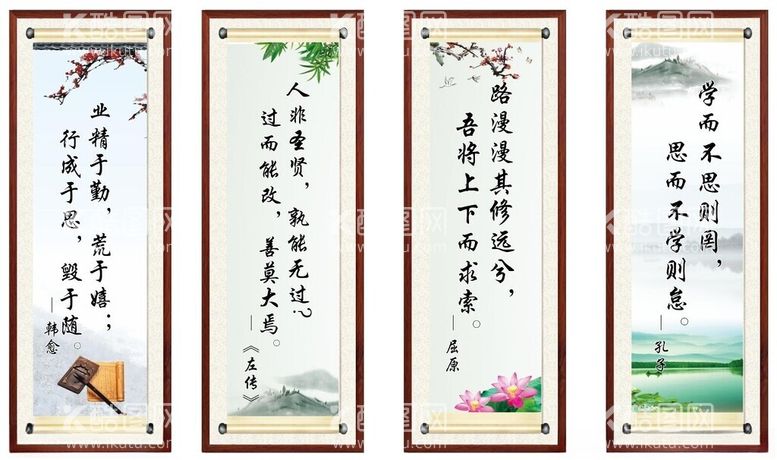 业精于勤，荒于嬉；
行成于思，毁于随。
——韩愈
人非圣贤，孰能无过？
过而能改，善莫大焉。
——《左传》
路漫漫其修远兮，
吾将上下而求索。
——屈原
学而不思则罔，
思而不学则怠。
——孔子
酷图网
www.ikutu.com